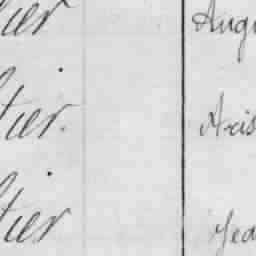 tier Augu
tier. Aris
tier Jea